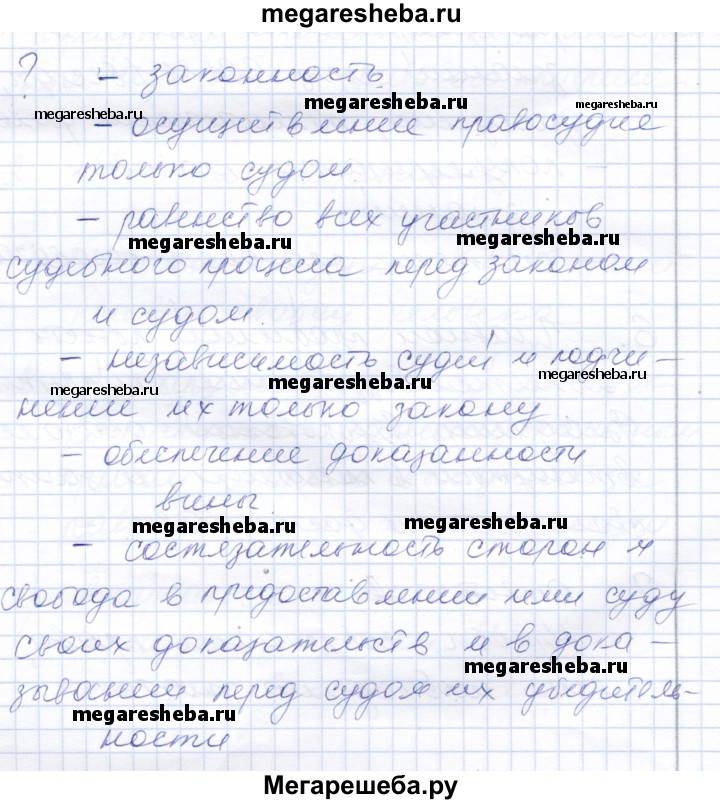 megaresheba.ru
? - законность
megaresheba.ru megaresheba.ru megaresheba.ru
- осуществление правосудие
только судом.
- равенство всех участников
megaresheba.ru megaresheba.ru
судебного процесса перед законом
и судом.
- независимость судей и подчи-
megaresheba.ru megaresheba.ru megaresheba.ru
нение их только закону.
- обеспечение доказанности
вины.
megaresheba.ru megaresheba.ru
- состязательность сторон и
свобода в предоставлении ими суду
своих доказательств и в дока-
megaresheba.ru
зывании перед судом их убедитель-
megaresheba.ru
ности
Мегарешеба.ру